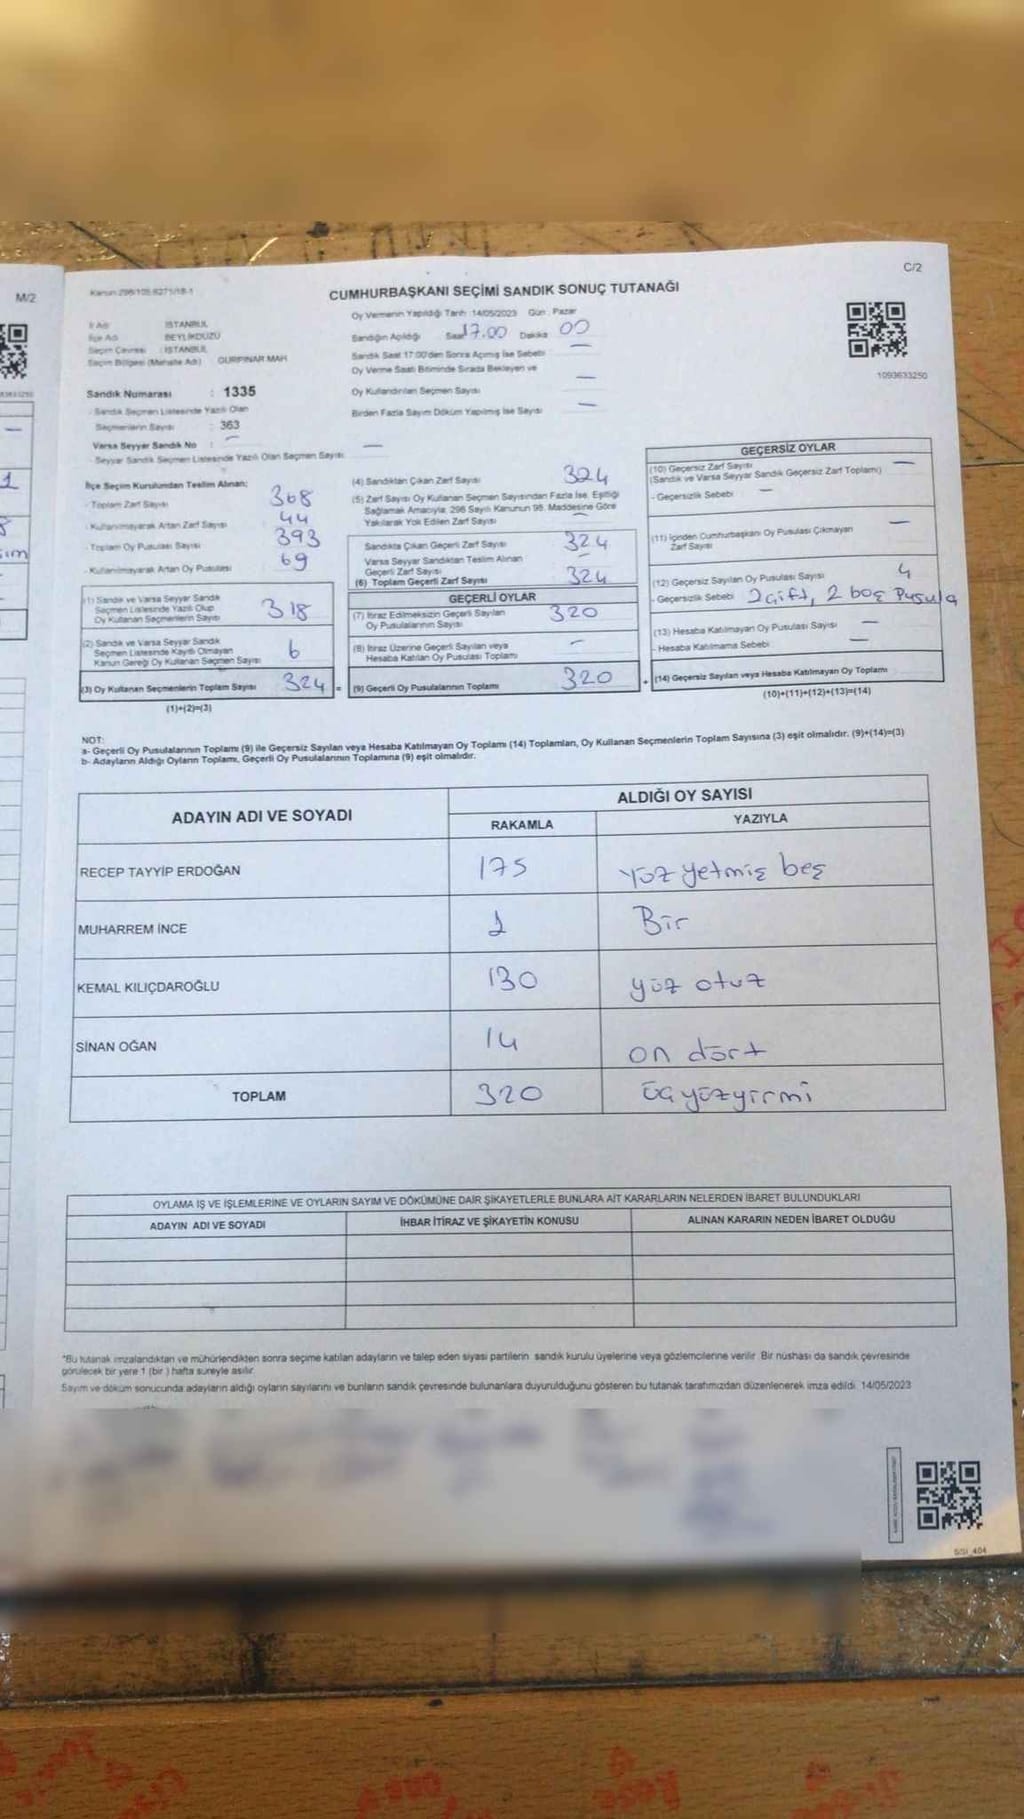 M/2
C/2
Kanun:298/105-6271/18-1
CUMHURBAŞKANI SEÇİMİ SANDIK SONUÇ TUTANAĞI
İl Adı : İSTANBUL
İlçe Adı : BEYLİKDÜZÜ
Seçim Çevresi : İSTANBUL
Seçim Bölgesi (Mahalle Adı) : GÜRPINAR MAH
Sandık Numarası : 1335
- Sandık Seçmen Listesinde Yazılı Olan
Seçmenlerin Sayısı : 363
Varsa Seyyar Sandık No : —
- Seyyar Sandık Seçmen Listesinde Yazılı Olan Seçmen Sayısı: —
Oy Vermenin Yapıldığı Tarih :14/05/2023 Gün : Pazar
Sandığın Açıldığı Saat 17.00 Dakika 00
Sandık Saat 17:00'den Sonra Açılmış İse Sebebi —
Oy Verme Saati Bitiminde Sırada Bekleyen ve
Oy Kullandırılan Seçmen Sayısı —
Birden Fazla Sayım Döküm Yapılmış İse Sayısı —
1093633250
İlçe Seçim Kurulundan Teslim Alınan;
- Toplam Zarf Sayısı 368
- Kullanılmayarak Artan Zarf Sayısı 44
- Toplam Oy Pusulası Sayısı 393
- Kullanılmayarak Artan Oy Pusulası 69
(1) Sandık ve Varsa Seyyar Sandık
Seçmen Listesinde Yazılı Olup
Oy Kullanan Seçmenlerin Sayısı 318
(2) Sandık ve Varsa Seyyar Sandık
Seçmen Listesinde Kayıtlı Olmayan
Kanun Gereği Oy Kullanan Seçmen Sayısı 6
(3) Oy Kullanan Seçmenlerin Toplam Sayısı 324 =
(1)+(2)=(3)
(4) Sandıktan Çıkan Zarf Sayısı 324
(5) Zarf Sayısı Oy Kullanan Seçmen Sayısından Fazla İse, Eşitliği
Sağlamak Amacıyla, 298 Sayılı Kanunun 98. Maddesine Göre
Yakılarak Yok Edilen Zarf Sayısı —
Sandıkta Çıkan Geçerli Zarf Sayısı 324
Varsa Seyyar Sandıktan Teslim Alınan
Geçerli Zarf Sayısı —
(6) Toplam Geçerli Zarf Sayısı 324
GEÇERLİ OYLAR
(7) İtiraz Edilmeksizin Geçerli Sayılan
Oy Pusulalarının Sayısı 320
(8) İtiraz Üzerine Geçerli Sayılan veya
Hesaba Katılan Oy Pusulası Toplamı —
(9) Geçerli Oy Pusulalarının Toplamı 320 +
GEÇERSİZ OYLAR
(10) Geçersiz Zarf Sayısı —
(Sandık ve Varsa Seyyar Sandık Geçersiz Zarf Toplamı)
- Geçersizlik Sebebi —
(11) İçinden Cumhurbaşkanı Oy Pusulası Çıkmayan
Zarf Sayısı —
(12) Geçersiz Sayılan Oy Pusulası Sayısı 4
- Geçersizlik Sebebi 2 çift, 2 boş Pusula
(13) Hesaba Katılmayan Oy Pusulası Sayısı —
- Hesaba Katılmama Sebebi —
(14) Geçersiz Sayılan veya Hesaba Katılmayan Oy Toplamı
(10)+(11)+(12)+(13)=(14)
NOT:
a- Geçerli Oy Pusulalarının Toplamı (9) ile Geçersiz Sayılan veya Hesaba Katılmayan Oy Toplamı (14) Toplamları, Oy Kullanan Seçmenlerin Toplam Sayısına (3) eşit olmalıdır. (9)+(14)=(3)
b- Adayların Aldığı Oyların Toplamı, Geçerli Oy Pusulalarının Toplamına (9) eşit olmalıdır.
ADAYIN ADI VE SOYADI
ALDIĞI OY SAYISI
RAKAMLA YAZIYLA
RECEP TAYYİP ERDOĞAN 175 Yüz yetmiş beş
MUHARREM İNCE 1 Bir
KEMAL KILIÇDAROĞLU 130 yüz otuz
SİNAN OĞAN 14 on dört
TOPLAM 320 üçyüzyirmi
OYLAMA İŞ VE İŞLEMLERİNE VE OYLARIN SAYIM VE DÖKÜMÜNE DAİR ŞİKAYETLERLE BUNLARA AİT KARARLARIN NELERDEN İBARET BULUNDUKLARI
ADAYIN ADI VE SOYADI İHBAR İTİRAZ VE ŞİKAYETİN KONUSU ALINAN KARARIN NEDEN İBARET OLDUĞU
*Bu tutanak imzalandıktan ve mühürlendikten sonra seçime katılan adayların ve talep eden siyasi partilerin sandık kurulu üyelerine veya gözlemcilerine verilir. Bir nüshası da sandık çevresinde
görülecek bir yere 1 (bir ) hafta süreyle asılır.
Sayım ve döküm sonucunda adayların aldığı oyların sayılarını ve bunların sandık çevresinde bulunanlara duyurulduğunu gösteren bu tutanak tarafımızdan düzenlenerek imza edildi. 14/05/2023